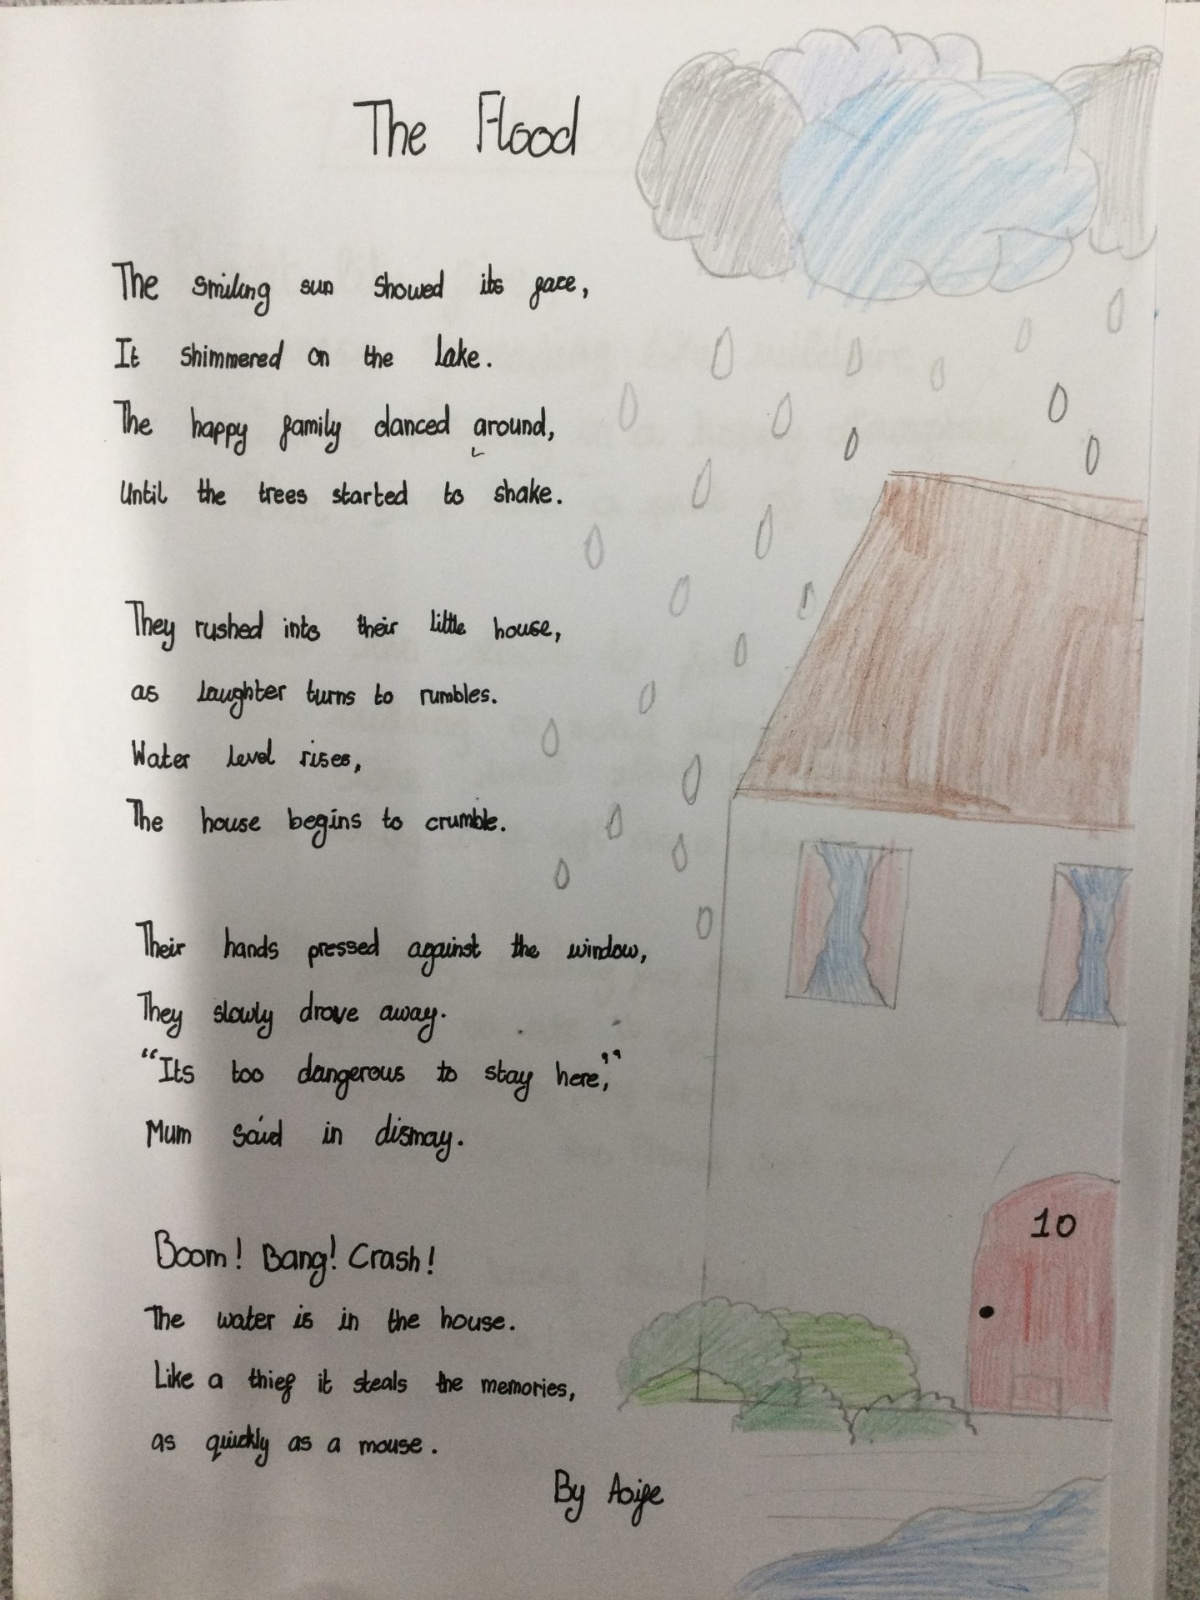 The Flood
The smiling sun showed its face,
It shimmered on the lake.
The happy family danced around,
Until the trees started to shake.
They rushed into their little house,
as laughter turns to rumbles.
Water level rises,
The house begins to crumble.
Their hands pressed against the window,
They slowly drove away.
“Its too dangerous to stay here,”
Mum said in dismay.
Boom! Bang! Crash!
The water is in the house.
Like a thief it steals the memories,
as quickly as a mouse.
By Aoife
10